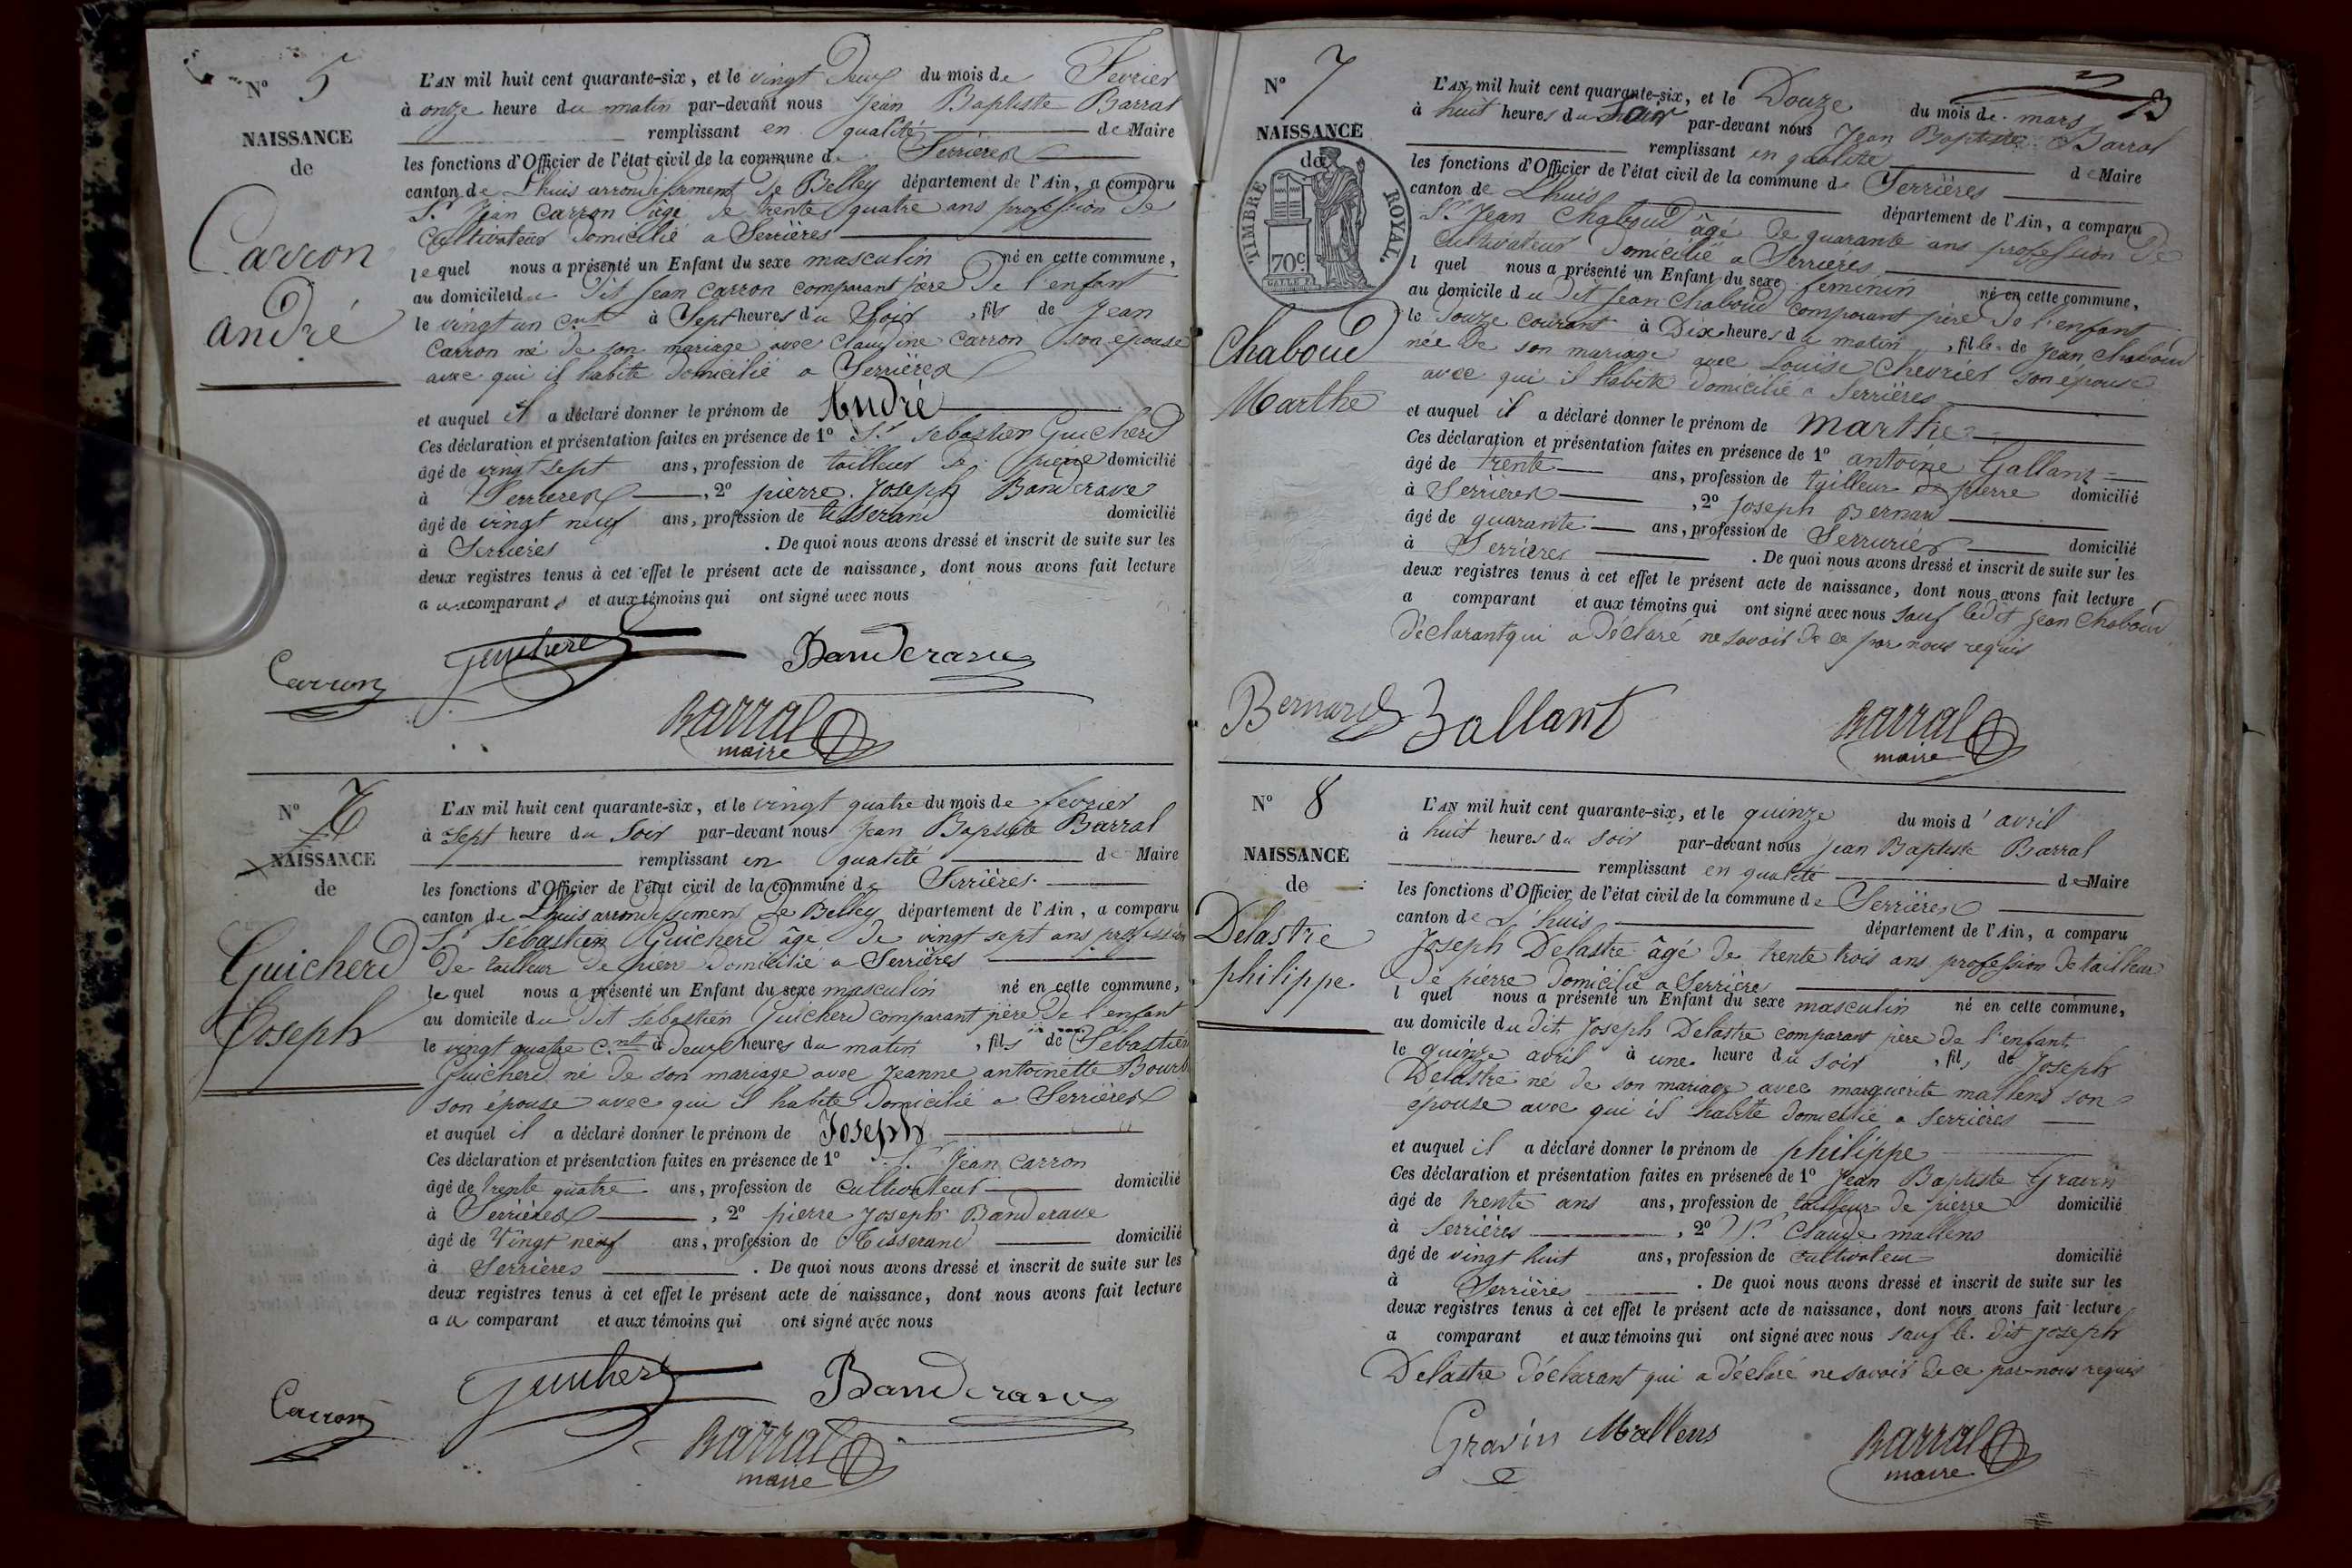 N° 5
NAISSANCE
de
Carron
andré
L'AN mil huit cent quarante-six, et le vingt Deux du mois de Fevrier
à onze heure du matin par-devant nous Jean Baptiste Barral
remplissant en qualité de Maire
les fonctions d'Officier de l'état civil de la commune de Serrières
canton de Lhuis arrondissement de Belley département de l'Ain, a comparu
Sr Jean Carron âgé de trente quatre ans profession de
Cultivateur domicilié a Serrières
lequel nous a présenté un Enfant du sexe masculin né en cette commune,
au domicile du dit Jean Carron comparant père De l'enfant
le vingt un Cnt à Sept heures du Soir, fils de Jean
Carron né de son mariage avec Claudine Carron son epouse
avec qui il habite domicilié a Serrières
et auquel il a déclaré donner le prénom de André
Ces déclaration et présentation faites en présence de 1° Sr Sebastien Guicherd
âgé de vingt sept ans, profession de tailleur de pierre domicilié
à Serrieres, 2° pierre Joseph Banderave
âgé de vingt neuf ans, profession de tisserand domicilié
à Serrières. De quoi nous avons dressé et inscrit de suite sur les
deux registres tenus à cet effet le présent acte de naissance, dont nous avons fait lecture
a ux comparants et aux témoins qui ont signé avec nous
Carron Guicherd Banderave
Barral
maire
N° 6
NAISSANCE
de
Guicherd
Joseph
L'AN mil huit cent quarante-six, et le vingt quatre du mois de fevrier
à sept heure du Soir par-devant nous Jean Baptiste Barral
remplissant en qualité de Maire
les fonctions d'Officier de l'état civil de la commune de Serrières
canton de Lhuis arrondissement de Belley département de l'Ain, a comparu
Sr Sébastien Guicherd âgé de vingt sept ans profession
De tailleur de pierre domicilié a Serrières
lequel nous a présenté un Enfant du sexe masculin né en cette commune,
au domicile du dit Sébastien Guicherd comparant père De l'enfant
le vingt quatre Cnt à deux heures du matin, fils de Sébastien
Guicherd né de son mariage avec Jeanne antoinette
son épouse avec qui il habite Domicilié a Serrières
et auquel il a déclaré donner le prénom de Joseph
Ces déclaration et présentation faites en présence de 1° Sr Jean Carron
âgé de trente quatre ans, profession de Cultivateur domicilié
à Serrières, 2° pierre Joseph Banderave
âgé de Vingt neuf ans, profession de Tisserand domicilié
à Serrières. De quoi nous avons dressé et inscrit de suite sur les
deux registres tenus à cet effet le présent acte de naissance, dont nous avons fait lecture
a u comparant et aux témoins qui ont signé avec nous
Carron Guicherd Banderave
Barral
maire
13
N° 7
NAISSANCE
de
TIMBRE ROYAL
70c
Chaboud
Marthe
L'AN mil huit cent quarante-six, et le Douze du mois de mars
à huit heures du Soir par-devant nous Jean Baptiste Barral
remplissant en qualité de Maire
les fonctions d'Officier de l'état civil de la commune de Serrières
canton de Lhuis département de l'Ain, a comparu
Sr Jean Chaboud âgé de quarante ans profession De
Cultivateur Domicilié a Serrieres
l quel nous a présenté un Enfant du sexe feminin né en cette commune,
au domicile du Dit Jean Chaboud comparant père De l'enfant
le Douze courant à Dix heures du matin, fille de Jean Chaboud
née De son mariage avec Louise Chevrier son épouse
avec qui il habite domicilié a Serrières
et auquel il a déclaré donner le prénom de Marthe
Ces déclaration et présentation faites en présence de 1° antoine Gallant
âgé de trente ans, profession de tailleur de pierre domicilié
à Serrières, 2° Joseph Bernard
âgé de quarante ans, profession de Serrurier domicilié
à Serrieres. De quoi nous avons dressé et inscrit de suite sur les
deux registres tenus à cet effet le présent acte de naissance, dont nous avons fait lecture
a comparant et aux témoins qui ont signé avec nous sauf ledit Jean Chaboud
Déclarant qui a Déclaré ne savoir De ce par nous requis
Bernard Gallant Barral
maire
N° 8
NAISSANCE
de
Delastre
philippe
L'AN mil huit cent quarante-six, et le quinze du mois d'avril
à huit heures du soir par-devant nous Jean Baptiste Barral
remplissant en qualité de Maire
les fonctions d'Officier de l'état civil de la commune de Serrières
canton de L'huis département de l'Ain, a comparu
Joseph Delastre âgé de trente trois ans profession de tailleur
de pierre Domicilié a Serrières
l quel nous a présenté un Enfant du sexe masculin né en cette commune,
au domicile du dit Joseph Delastre comparant père de l'enfant
le quinze avril à une heure du soir, fils de Joseph
Delastre né de son mariage avec marguerite mallens son
epouse avec qui il habite domicilié a Serrières
et auquel il a déclaré donner le prénom de philippe
Ces déclaration et présentation faites en présence de 1° Jean Baptiste Gravin
âgé de trente ans ans, profession de tailleur de pierre domicilié
à Serrières, 2° Sr Claude mallens
âgé de vingt huit ans, profession de cultivateur domicilié
à Serrières. De quoi nous avons dressé et inscrit de suite sur les
deux registres tenus à cet effet le présent acte de naissance, dont nous avons fait lecture
a comparant et aux témoins qui ont signé avec nous sauf le dit Joseph
Delastre déclarant qui a déclaré ne savoir de ce par nous requis
Gravin Mallens Barral
maire